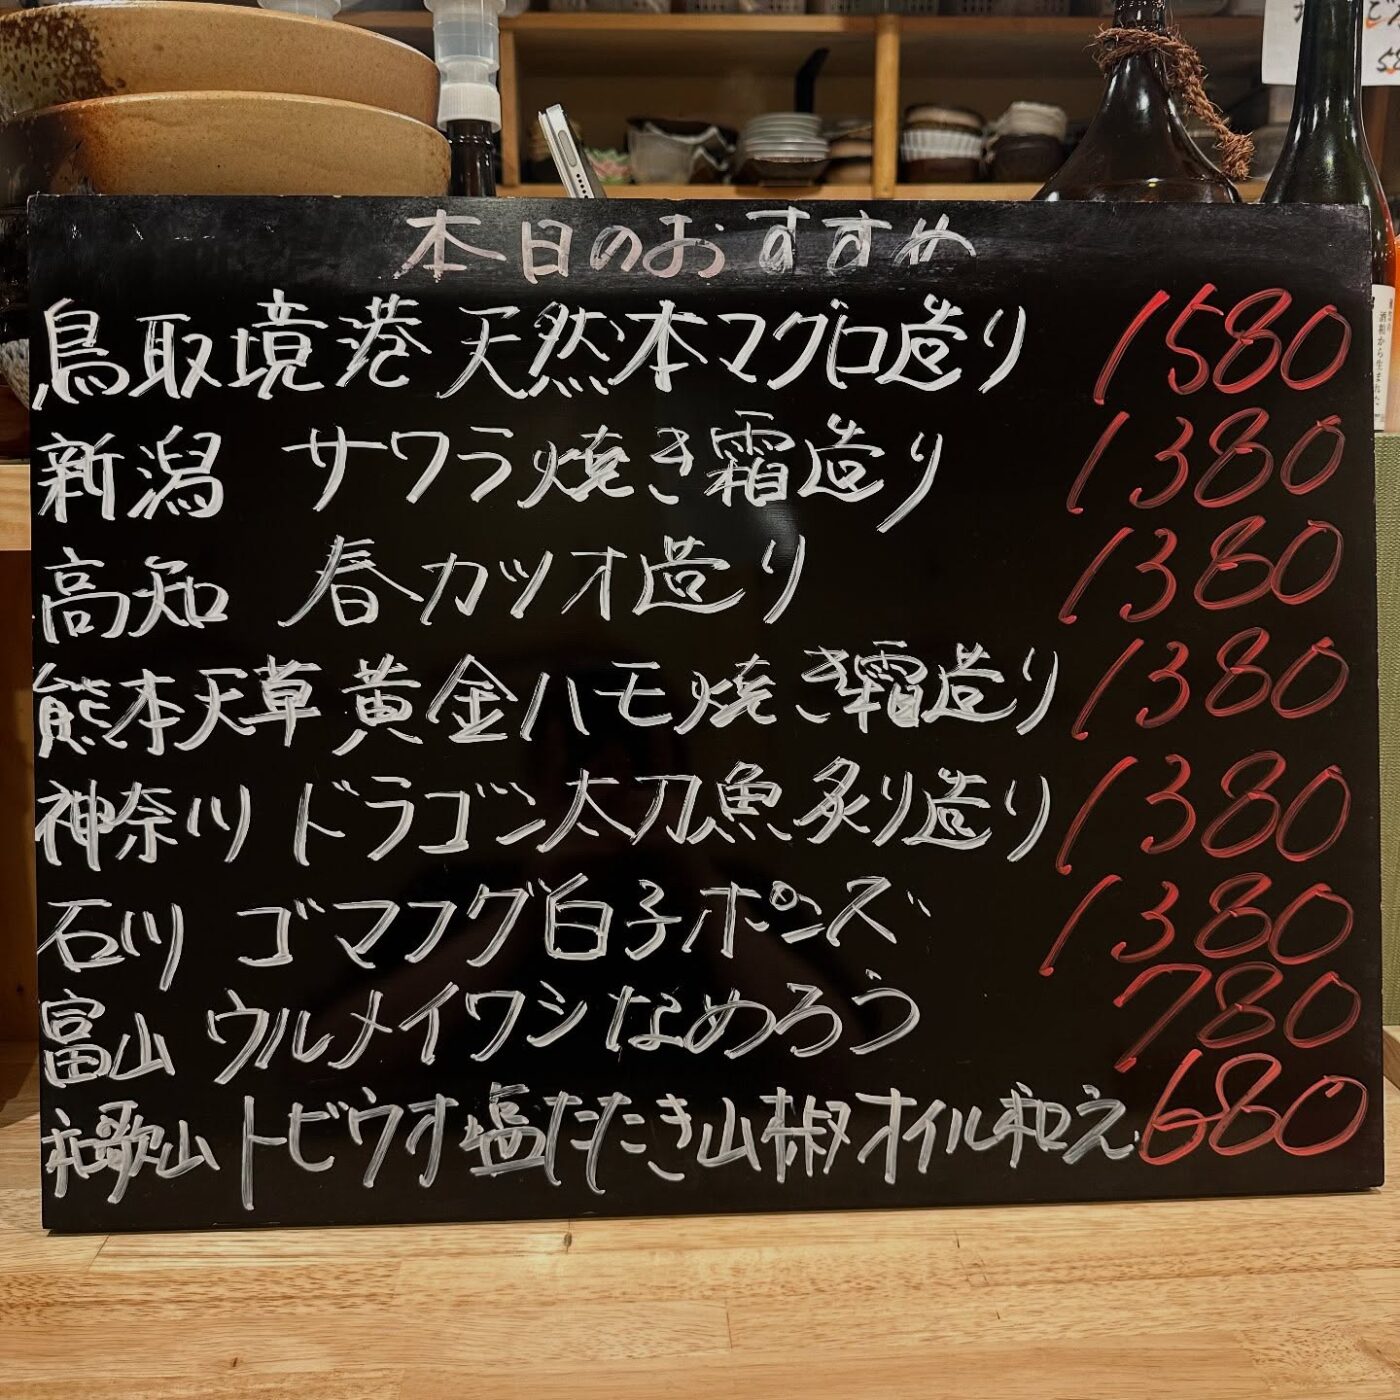 本日のおすすめ
鳥取境港 天然本マグロ造り 1580
新潟 サワラ焼き霜造り 1380
高知 春カツオ造り 1380
熊本天草 黄金ハモ焼き霜造り 1380
神奈川 ドラゴン太刀魚炙り造り 1380
石川 ゴマフグ白子ポンズ 1380
富山 ウルメイワシなめろう 780
和歌山 トビウオ塩たたき山椒オイル和え 680
酒粕から生まれた